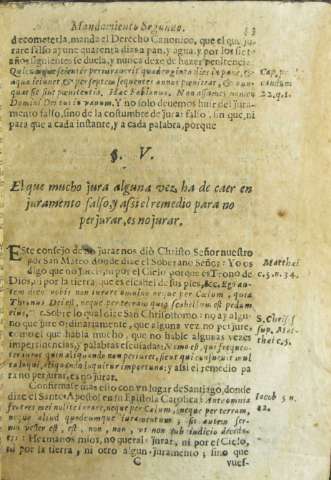 Mandamiento Segundo. 33
de cometerla, manda el Derecho Canonico, que el que ju-
rare falso ayune quarenta dias a pan, y agua, y por los siete
años siguientes se duela, y nunca dexe de hazer penitencia.
Quicumque scienter periuraverit quadraginta dies in pane, &
aqua ieiunet & per septem sequentes annos pœniteat, & nun-
quam sit sine pœnitentia. Hæc Fabianus. Non assumes nomen
Domini Dei tui in vanum. Y no solo devemos huir del jura-
mento falso, sino de la costumbre de jurar falso, sin que, ni
para que a cada instante, y a cada palabra, porque
Cap.
22.q.1.
§. V.
El que mucho jura alguna vez ha de caer en
juramento falso, y assi el remedio para no
perjurar, es no jurar.
Este consejo de no jurar nos diò Christo Señor nuestro
por San Mateo, donde dize el Soberano Señor: Yo os
digo que no jureis, ni por el Cielo, porque es Trono de
Dios, ni por la tierra, que es escabel de sus pies, &c. Ego au-
tem dico vobis non iurare omnino neque per Cœlum, quia
Thronus Dei est, neque per terram quia scabellum est pedum
eius. Sobre lo qual dize San Chrisostomo: no ay algu-
no que jure ordinariamente, que alguna vez no perjure,
como el que habla mucho, que no hable algunas vezes
impertinencias, y palabras escusadas. Nemo est, qui frequenter
iurat quin aliquando non periuret, sicut qui
aliquando loquitur importuna; y assi el remedio pa-
ra no perjurar, es no jurar.
Matthæi
c.5.n.34.
S. Chris.
sup. Mat-
thæi c.5.
Confirmase mas esto con vn lugar de Santiago, donde
dize el Santo Apostol en su Epistola Catolica: Ante omnia
fratres mei nolite iurare, neque per Cœlum, neque per terram,
neque aliud quodcumque iuramentum; sit autem ser-
mo vester est, est, non, non, vt non sub iudicio decida-
tis: Hermanos mios, no querais jurar, ni por el Cielo,
ni por la tierra, ni otro algun juramento; sino que
Iacob 5.n.
12.
C
vues-